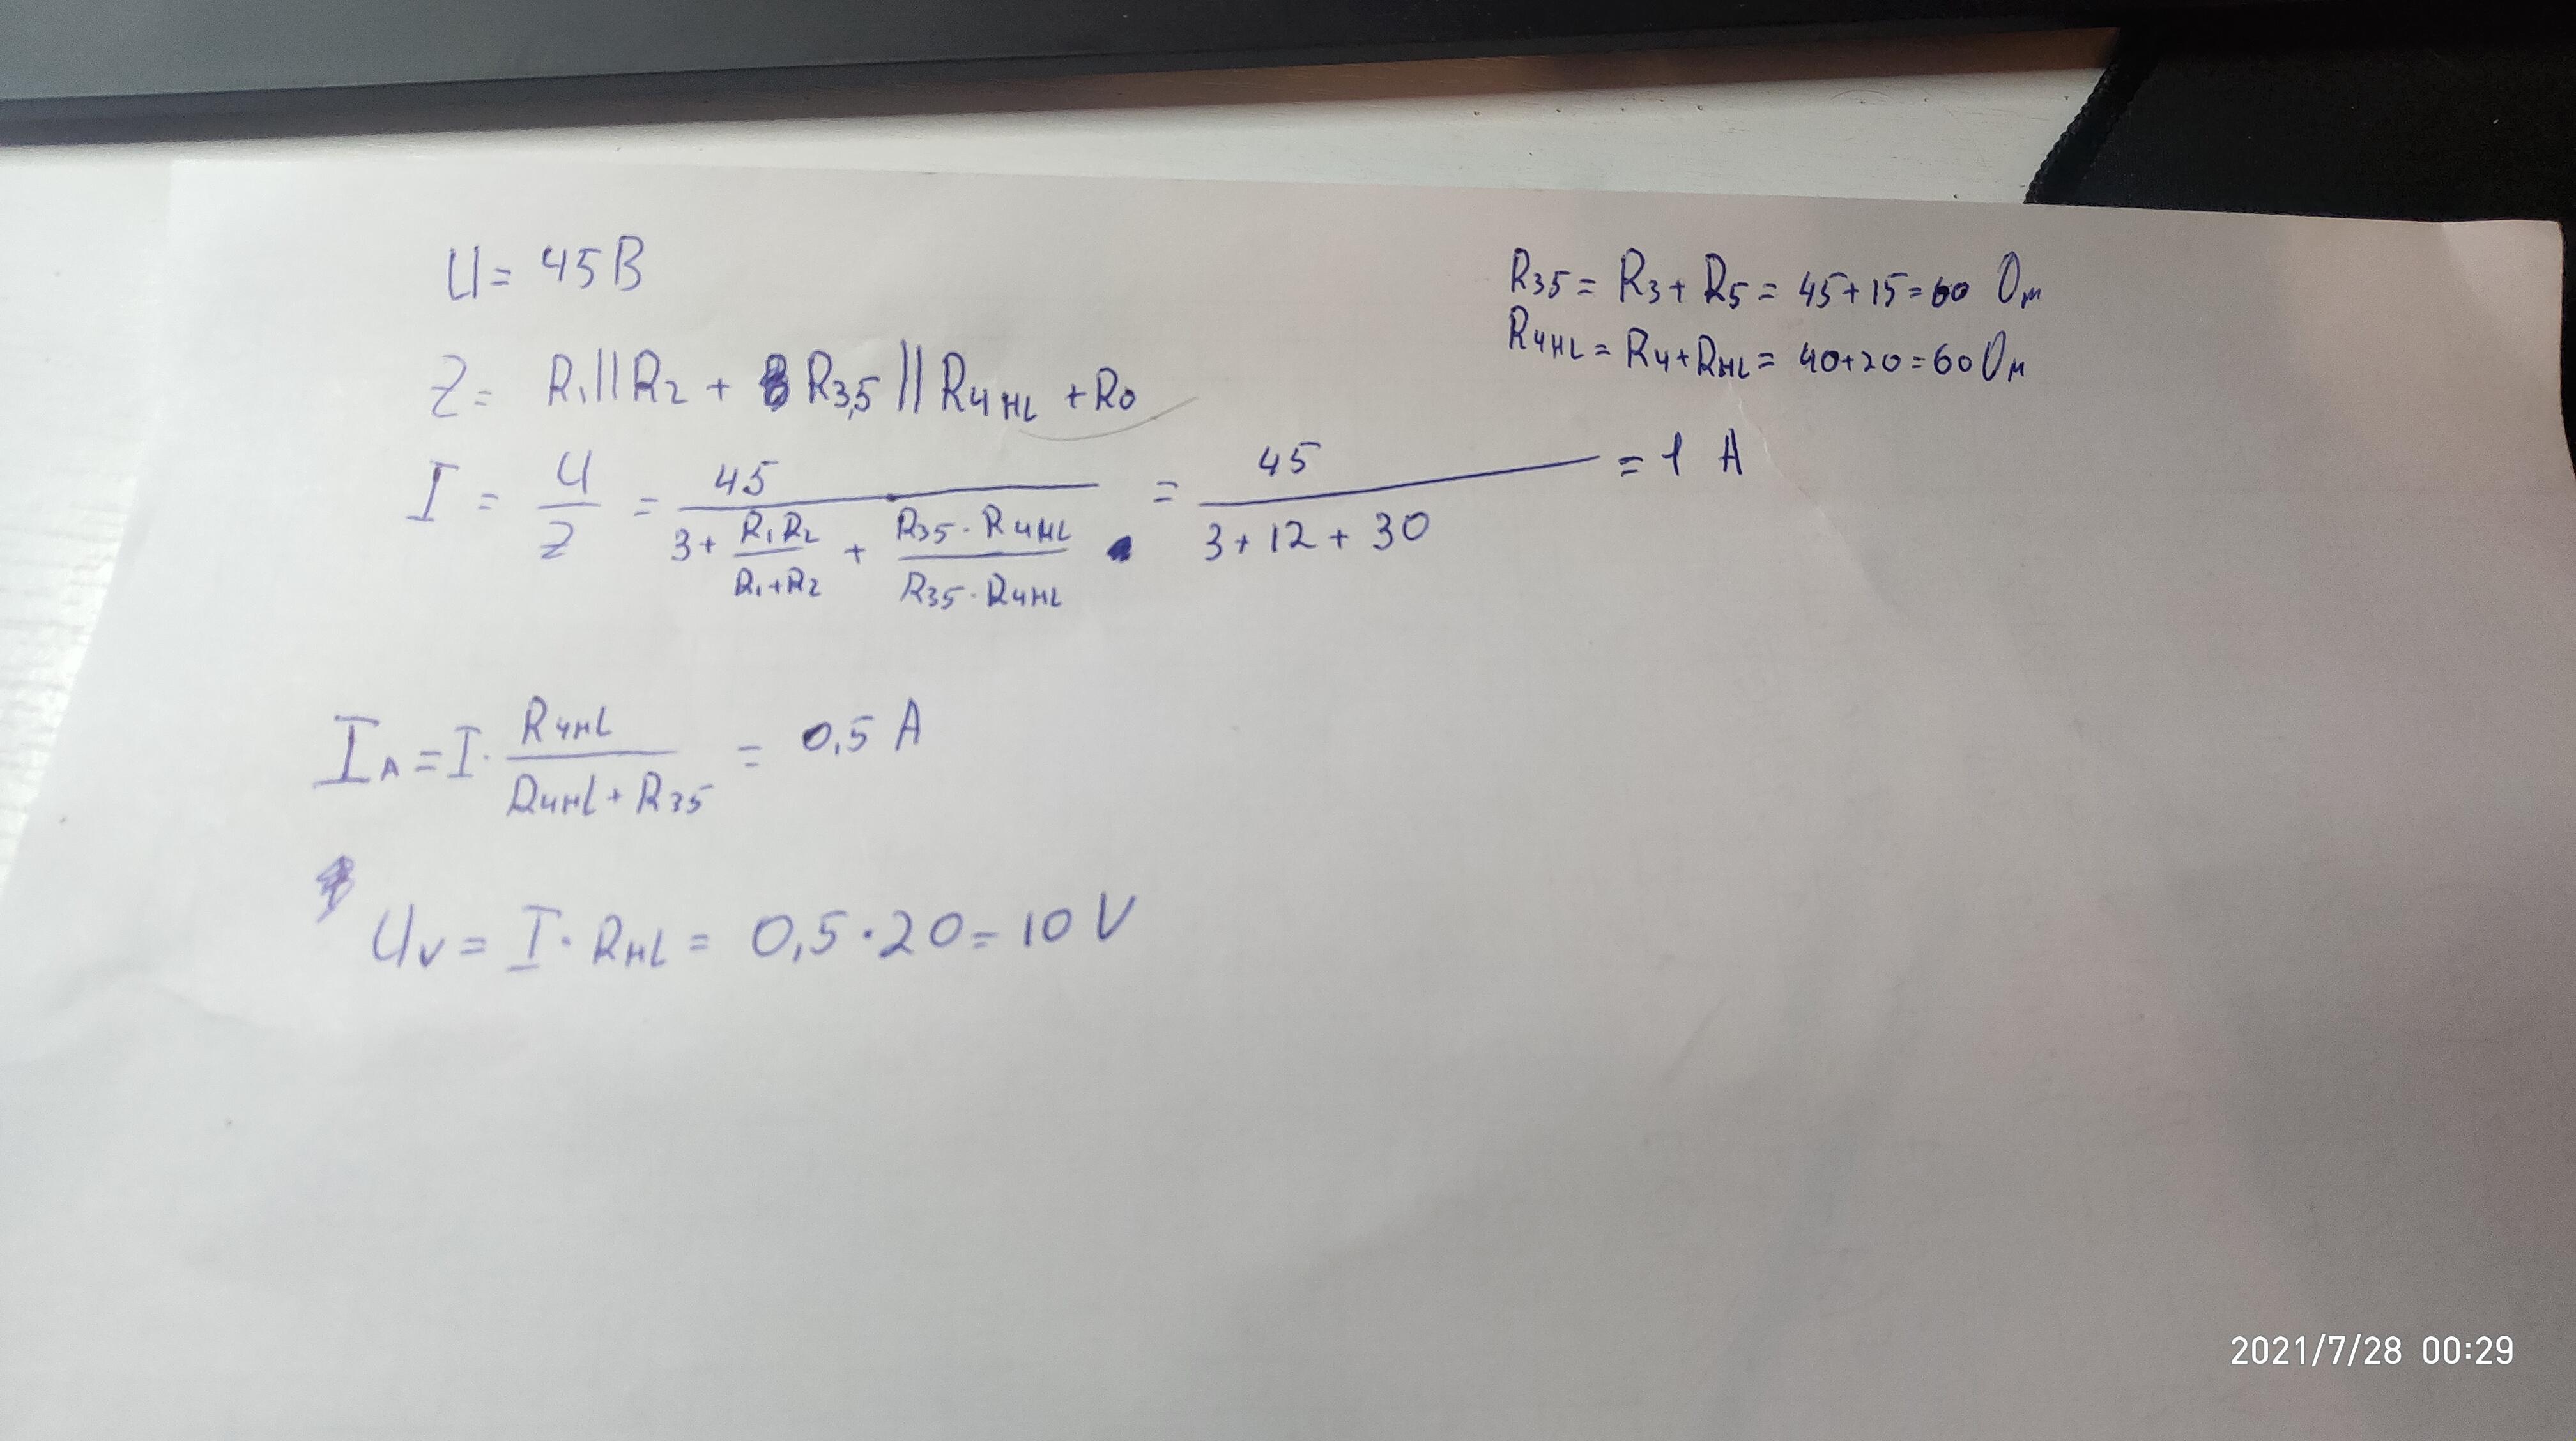 U = 45 В
R35 = R3 + R5 = 45+15=60 Ом
R4HL = R4+RHL = 40+20=60 Ом
Z = R1||R2 + R3,5 || R4HL + R0
I = U/Z = 45/(3 + R1R2/(R1+R2) + R35·R4HL/(R35·R4HL)) = 45/(3+12+30) = 1 A
IA = I · R4HL/(R4HL+R35) = 0,5 A
UV = I · RHL = 0,5·20=10 V
2021/7/28 00:29